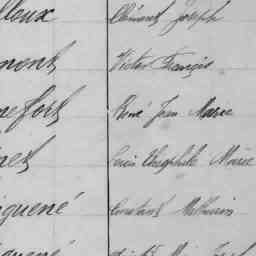 lloux Clément Joseph
mont Victor François
nefort René Jean Marie
net Louis Théophile Marie
guené Constant Mathurin